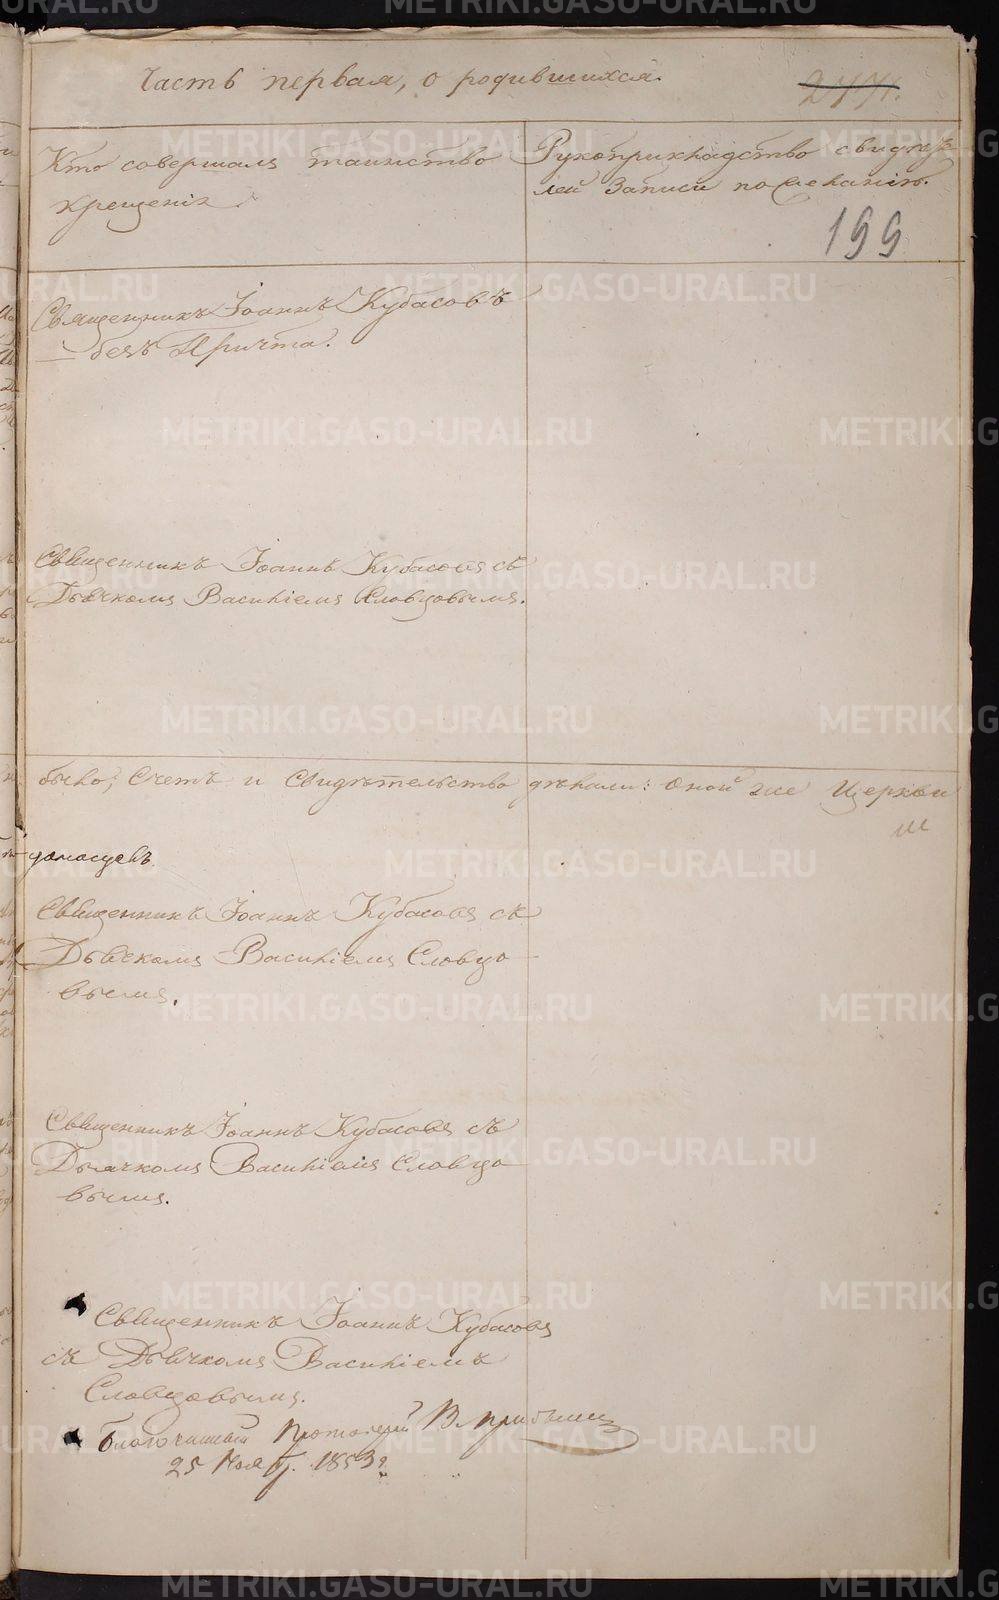 Часть первая, о родившихся.
Кто совершалъ таинство
крещенія.
Рукоприкладство свидѣте-
лей записи по желанію.
199
Священникъ Іоаннъ Кубасовъ
безъ Причта.
Священникъ Іоаннъ Кубасовъ съ
Дьячкомъ Василіемъ Словцовымъ.
было; Счетъ и Свидѣтельство дѣлали: Оной же Церкви
Священникъ Іоаннъ Кубасовъ съ
Дьячкомъ Василіемъ Словцо
вымъ.
Священникъ Іоаннъ Кубасовъ съ
Дьячкомъ Василіемъ Словцо
вымъ.
Священникъ Іоаннъ Кубасовъ
съ Дьячкомъ Василіемъ
Словцовымъ.
Благочинный Протоіерей В.
25 Нояб. 1853 г.
METRIKI.GASO-URAL.RU